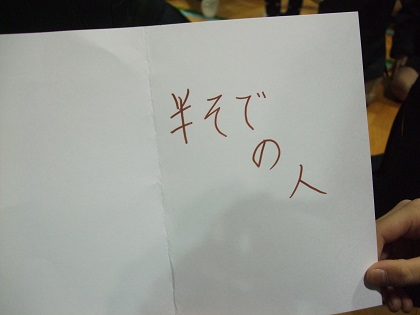 半そで
の
人